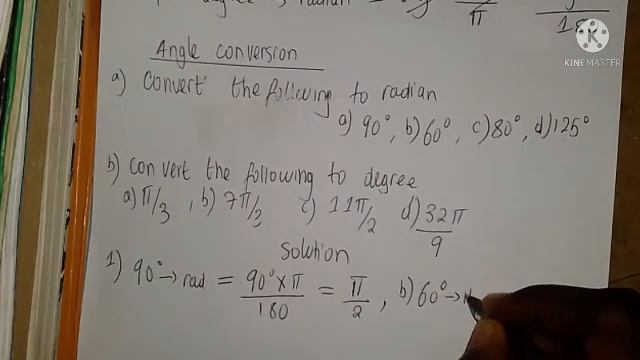 degree → radian =
π
18
KINEMASTER
Angle conversion
a) Convert the following to radian
a) 90°, b) 60°, c) 80°, d) 125°
b) convert the following to degree
a) π/3, b) 7π/3 c) 11π/2 d) 32π/9
Solution
1) 90° → rad = 90° × π/180 = π/2, b) 60° →